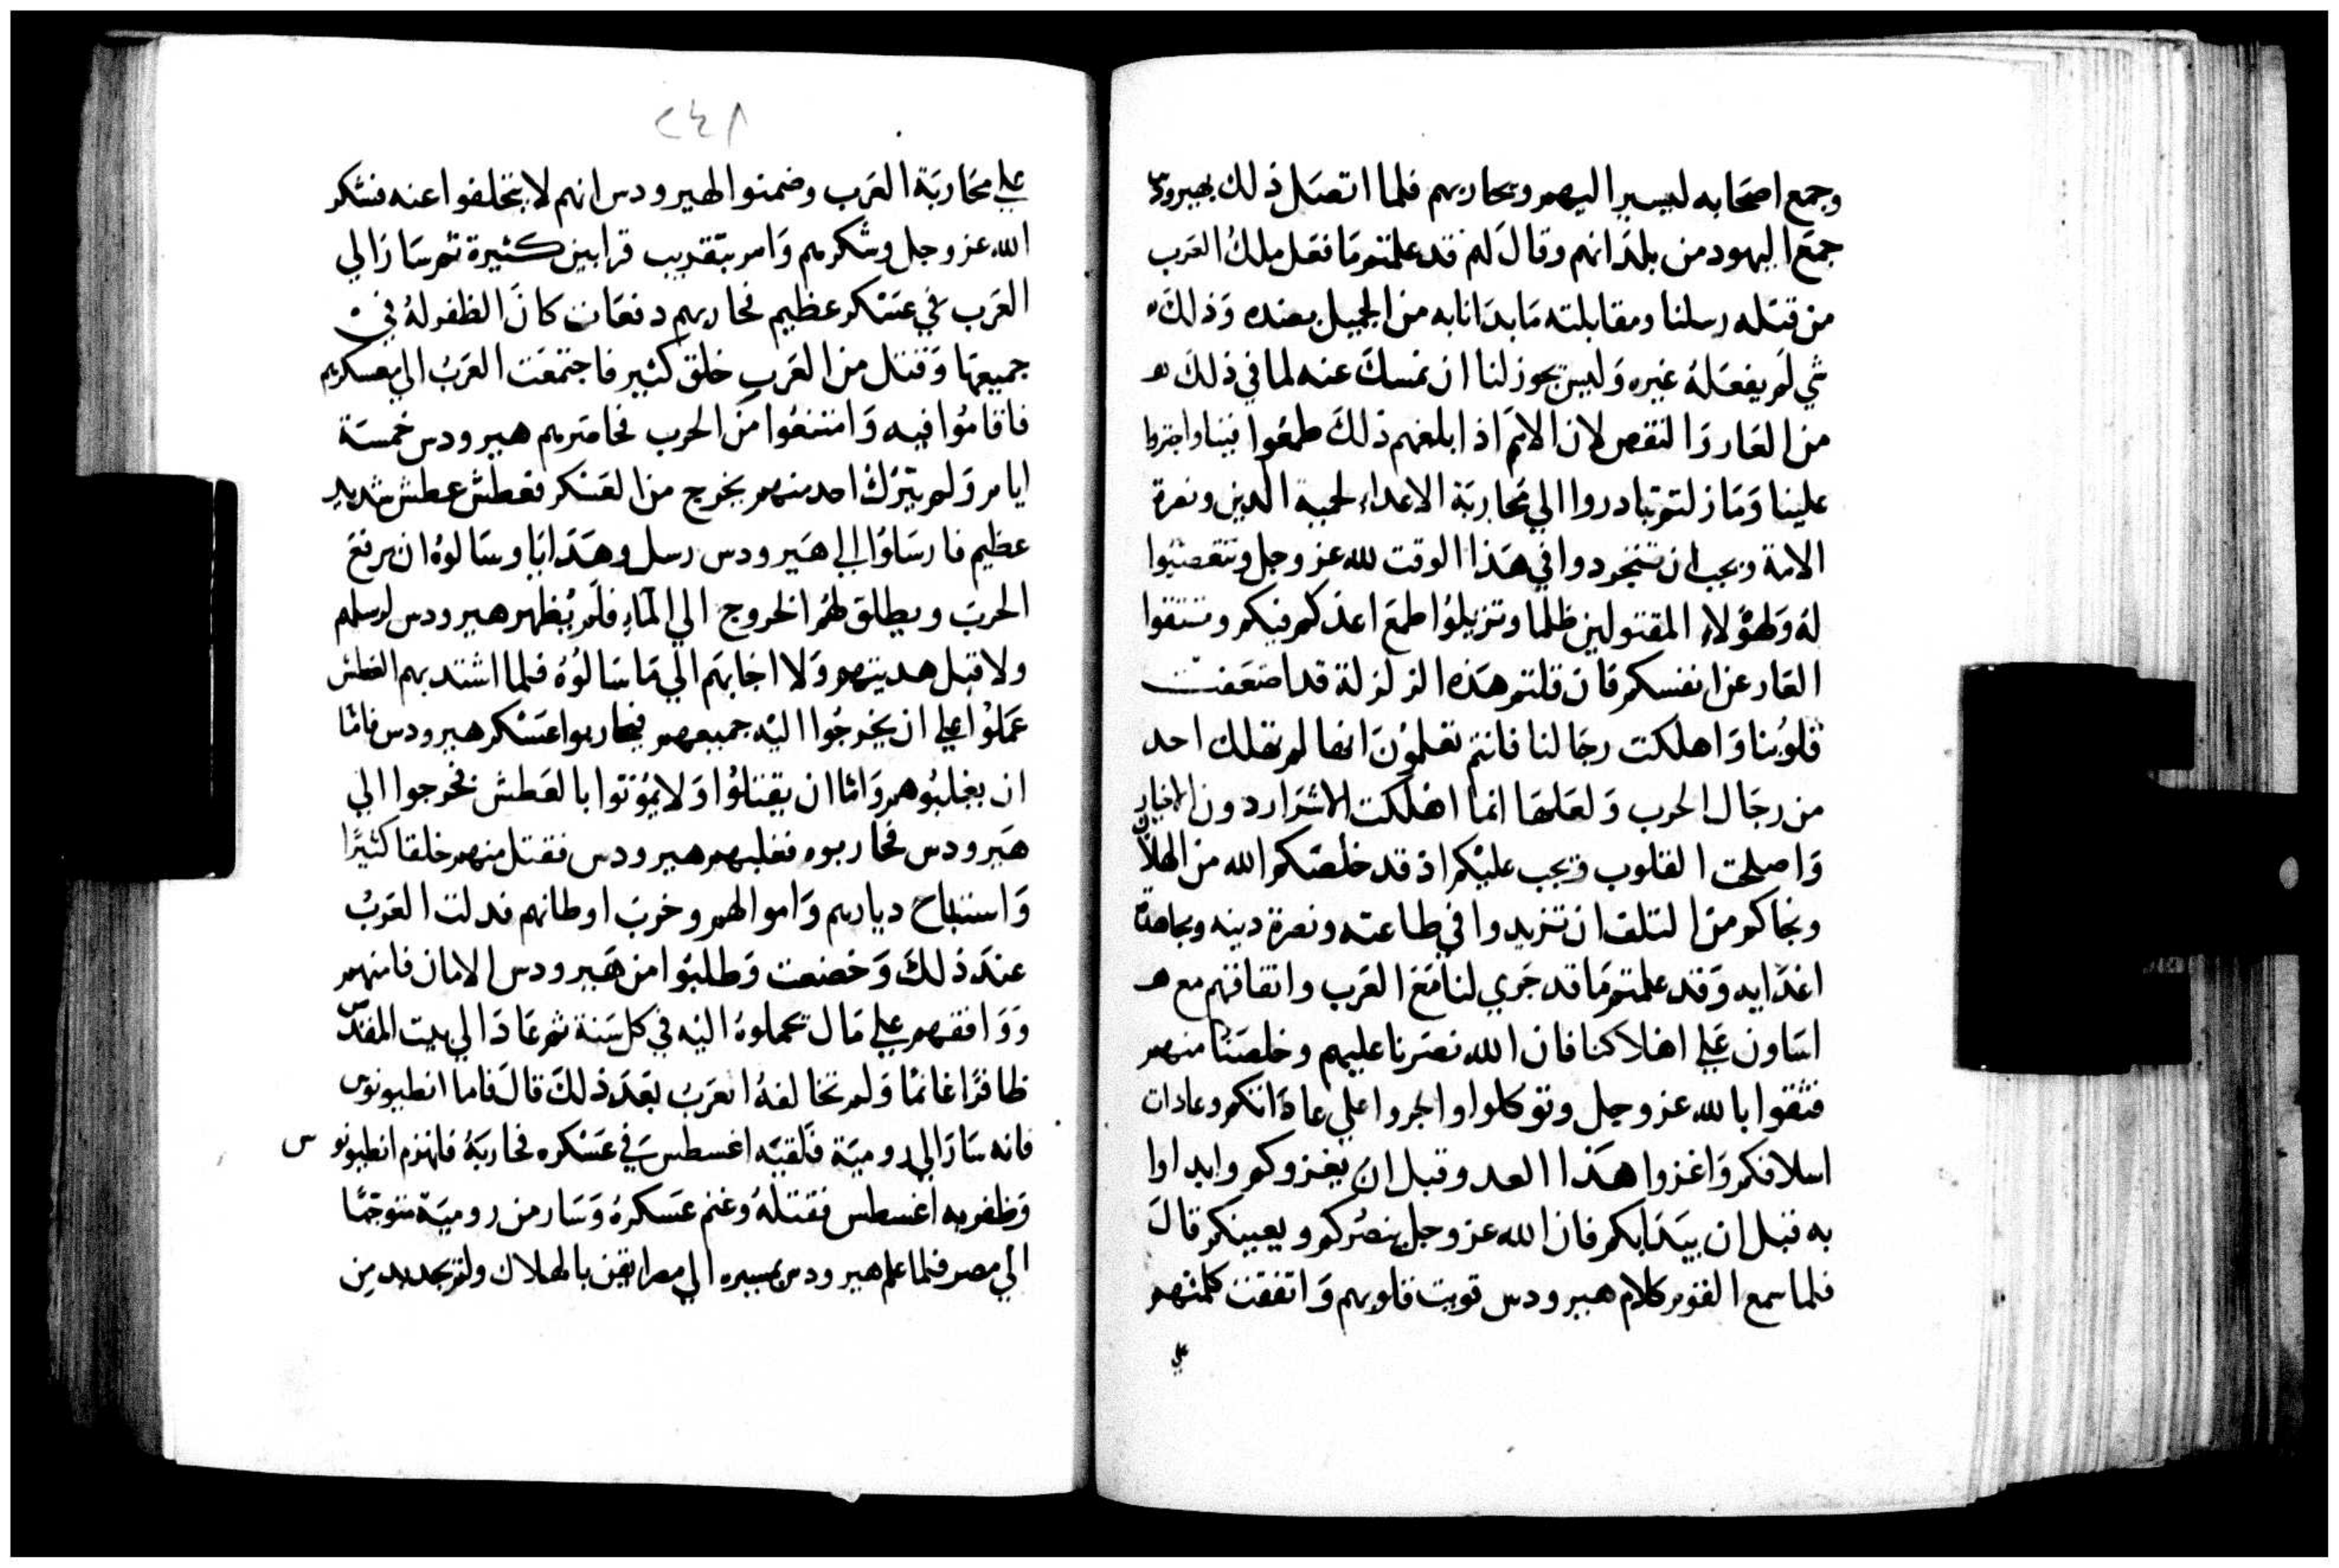 وجمع اصحابه ليسير اليهم ويحاربهم فلما اتصل ذلك بهيرودس
جمع اليهود من بلدانهم وقال لهم قد علمتم ما فعل ملك العرب
من قتله رسلنا ومقابلته ما بدانا به من الجميل بضده وذلك
شي لم يفعله غيره وليس يجوز لنا ان نمسك عنه لما في ذلك
من العار والنقص لان الامم اذا بلغهم ذلك طمعوا فينا واجتروا
علينا وما زلتم تبادروا الي محاربة الاعداء لحمية الدين ونصرة
الامة ويجب ان تتجردوا في هذا الوقت لله عز وجل وتتعصبوا
له ولهولاء المقتولين ظلما وتزيلوا طمع اعدكم فيكم وتنتفوا
العار عن انفسكم فان قلتم هذه الزلزلة قد اضعفت
قلوبنا واهلكت رجالنا فانتم تعلمون انها لم تهلك احد
من رجال الحرب ولعلها انما اهلكت الاشرار دون الاخيار
واصلحت القلوب ويجب عليكم اذ قد خلصكم الله من الهلاك
ونجاكم من التلف ان تزيدوا في طاعته ونصرة دينه ومجاهدة
اعدايه وقد علمتم ما قد جري لنا مع العرب واتفاقهم مع
اساون علي اهلاكنا فان الله نصرنا عليهم وخلصنا منهم
فثقوا بالله عز وجل وتوكلوا واجروا علي عاداتكم وعادات
اسلافكم واغزوا هذا العدو قبل ان يغزوكم وابداوا
به قبل ان يبدابكم فان الله عز وجل ينصركم ويعينكم قال
فلما سمع القوم كلام هيرودس قويت قلوبهم واتفقت كلمتهم
علي
٢٤٨
علي محاربة العرب وضمنوا لهيرودس انهم لا يتخلفوا عنه فشكر
الله عز وجل وشكرهم وامر بتقديب قرابين كثيرة ثم سار الي
العرب في عسكر عظيم فحاربهم دفعات كان الظفر له في
جميعها وقتل من العرب خلق كثير فاجتمعت العرب الي معسكرهم
فاقاموا فيه وامتنعوا من الحرب فحاصرهم هيرودس خمسة
ايام ولم يترك احد منهم يخرج من العسكر فعطش عطش شديد
عظيم فارسلوا الي هيرودس رسل وهدايا وسالوه ان يرفع
الحرب ويطلق لهم الخروج الي الماء فلم يظهر هيرودس لرسلهم
ولا قبل هديتهم ولا اجابهم الي ما سالوه فلما اشتد بهم العطش
عملوا علي ان يخرجوا اليه جميعهم فيحاربوا عسكر هيرودس فاما
ان يغلبوهم واما ان يقتلوا ولا يموتوا بالعطش فخرجوا الي
هيرودس فحاربوه فغلبهم هيرودس فقتل منهم خلقا كثيرا
واستباح ديارهم واموالهم وخرب اوطانهم فدلت العرب
عند ذلك وخضعت وطلبوا من هيرودس الامان فامنهم
ووافقهم علي مال يحملوه اليه في كل سنة ثم عاد الي بيت المقدس
ظافرا غانما ولم تخالفه العرب بعد ذلك قال فاما انطيونوس
فانه سار الي رومية فلقيه اغسطس في عسكره فحاربه فانهزم انطيونوس
وظفر به اغسطس فقتله وغنم عسكره وسار من رومية متوجها
الي مصر فلما علم هيرودس بمسيره الي مصر ايقن بالهلاك ولم يجد بد من